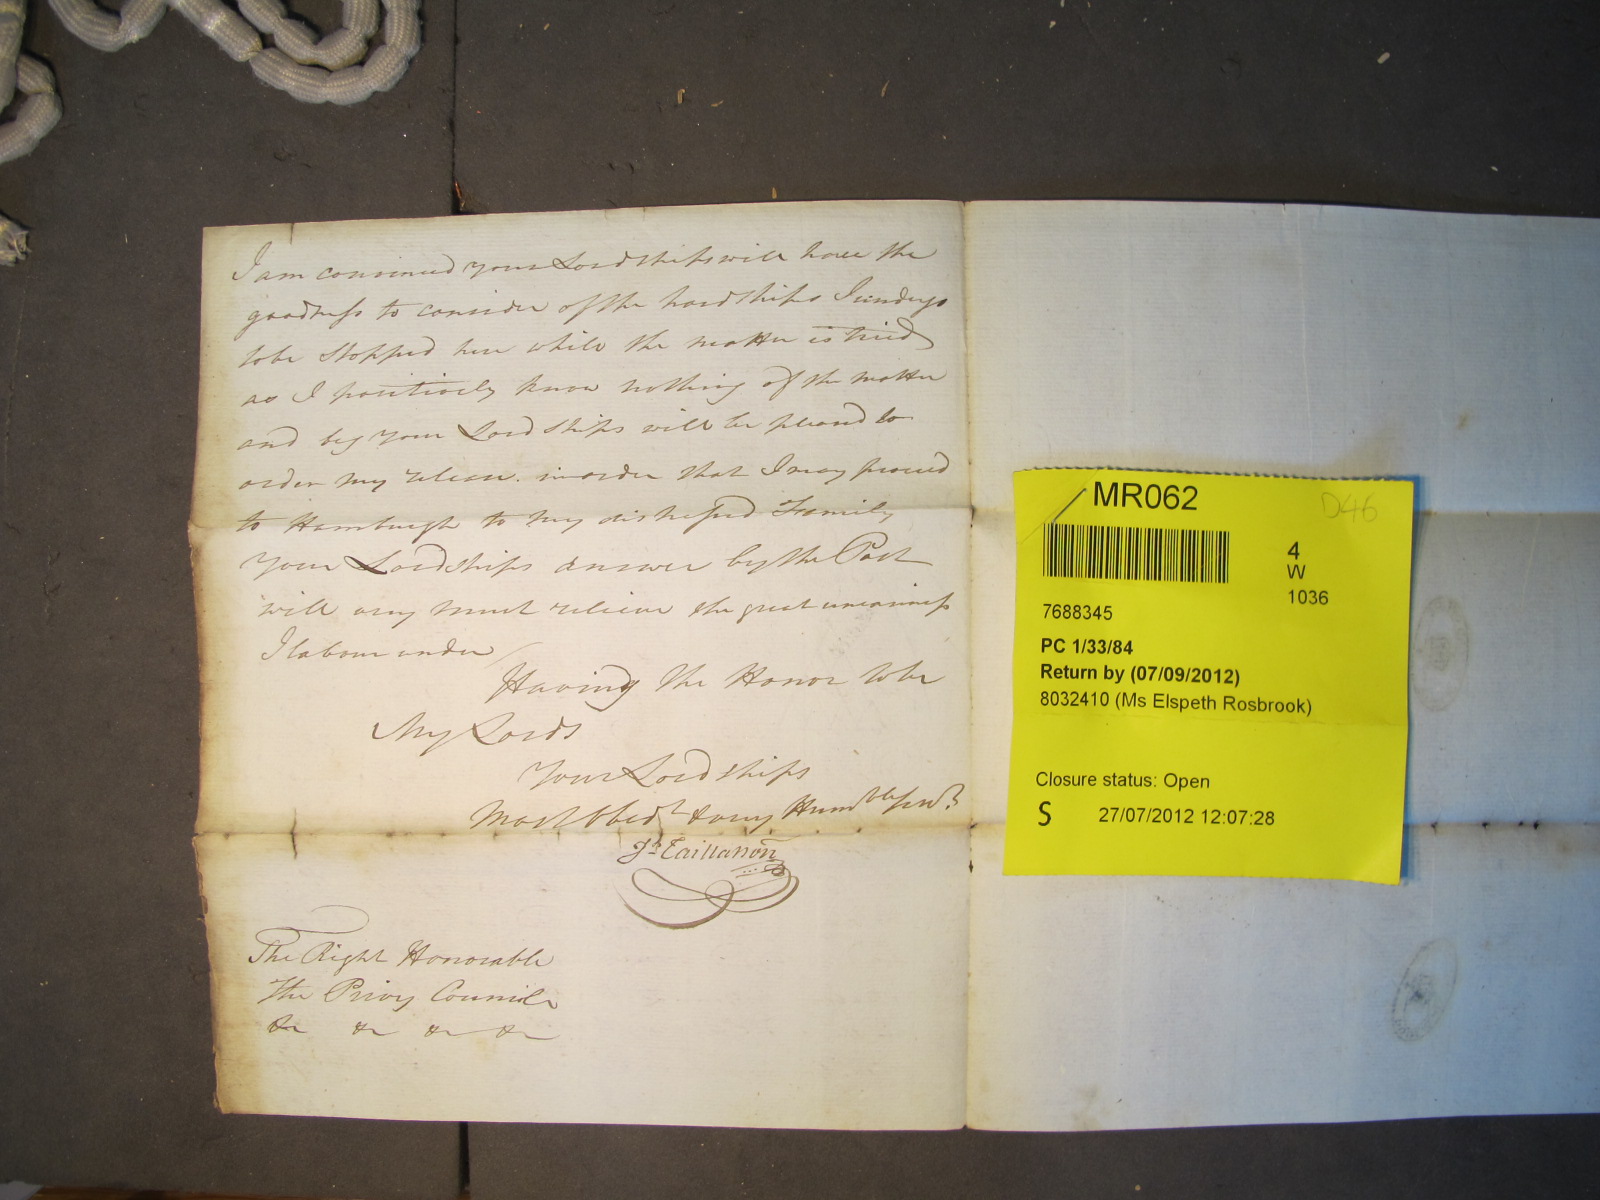 I am convinced your Lordships will have the
goodness to consider of the hardships I undergo
to be Stopped here while the matter is tried
as I positively know nothing of the matter
and beg your Lordships will be pleased to
order my release. in order that I may proceed
to Hamburgh to my distressed Family
Your Lordships answer by the Post
will very much relieve the great uneasiness
I labour under
Having the Honor to be
My Lords
Your Lordships
Most Obedt & very Humble Servt
Js Taillasson
The Right Honorable
The Privy Council
&c &c &c &c
MR062
D46
4
W
1036
7688345
PC 1/33/84
Return by (07/09/2012)
8032410 (Ms Elspeth Rosbrook)
Closure status: Open
S 27/07/2012 12:07:28